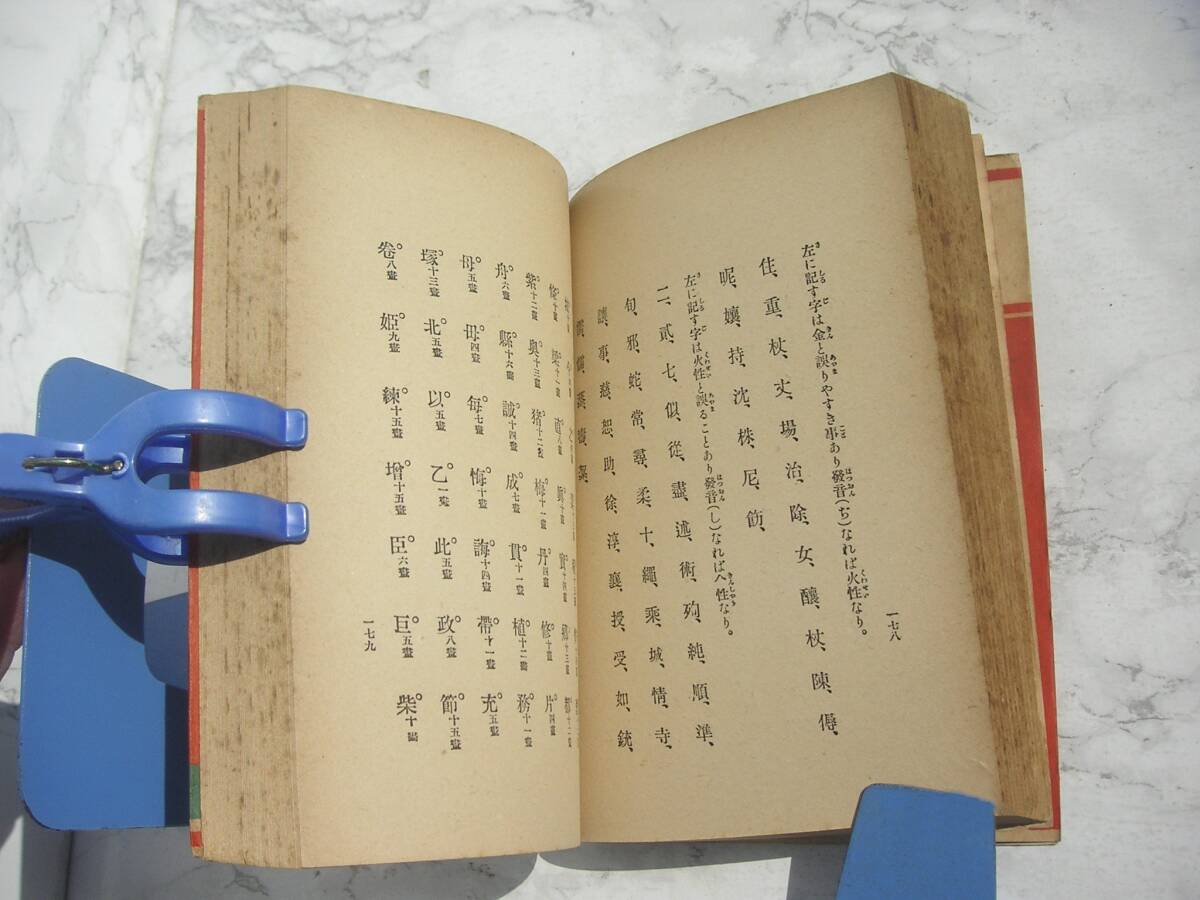 左に記す字は金と誤りやすき事あり發音(ぢ)なれば火性なり。
住、重、杖、丈、場、治、除、女、釀、杖、陳、
呢、孃、持、沈、株、尼、
左に記す字は火性と誤ることあり發音(し)なれば 性なり。
二、貳、七、似、從、盡、述、術、殉、純、順、準、
旬、邪、蛇、常、尋、柔、十、繩、乘、城、情、寺、
讓、事、慈、恕、助、徐、淳、襄、授、受、如、銃、
一七八
紫十二畫 奧十三畫 猪十二畫 梅十一畫 丹四畫 修十畫 片四畫
舟六畫 縣十六畫 誠十四畫 成七畫 貫十一畫 植十二畫 務十一畫
母五畫 母四畫 每七畫 悔十畫 誨十四畫 帶十一畫 充五畫
塚十三畫 北五畫 以五畫 乙一畫 此五畫 政八畫 節十五畫
卷八畫 姬九畫 練十五畫 增十五畫 臣六畫 巨五畫 柴十畫
一七九